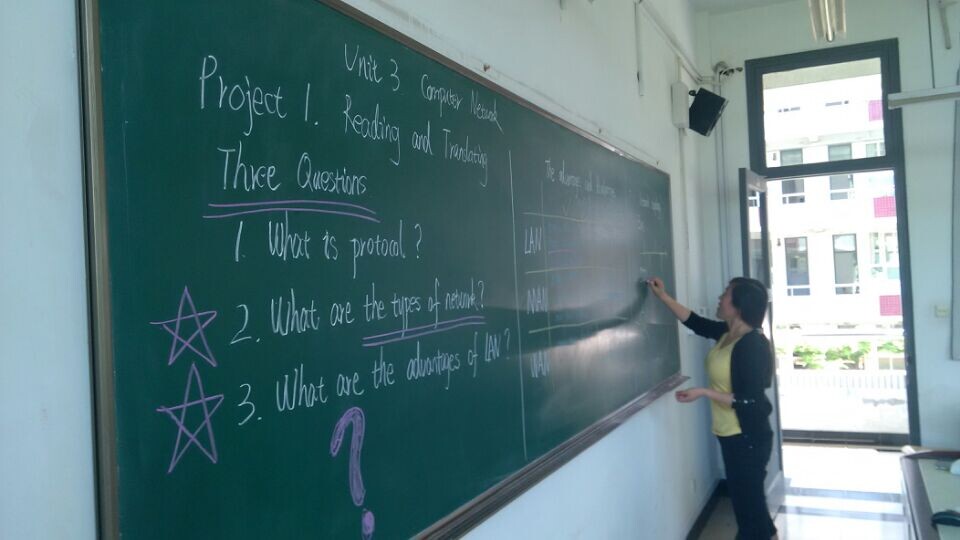 Unit 3 Computer Network
Project 1. Reading and Translating
Three Questions
1. What is protocol?
2. What are the types of network?
3. What are the advantages of LAN?
?
The advantages and
LAN
MAN
WAN